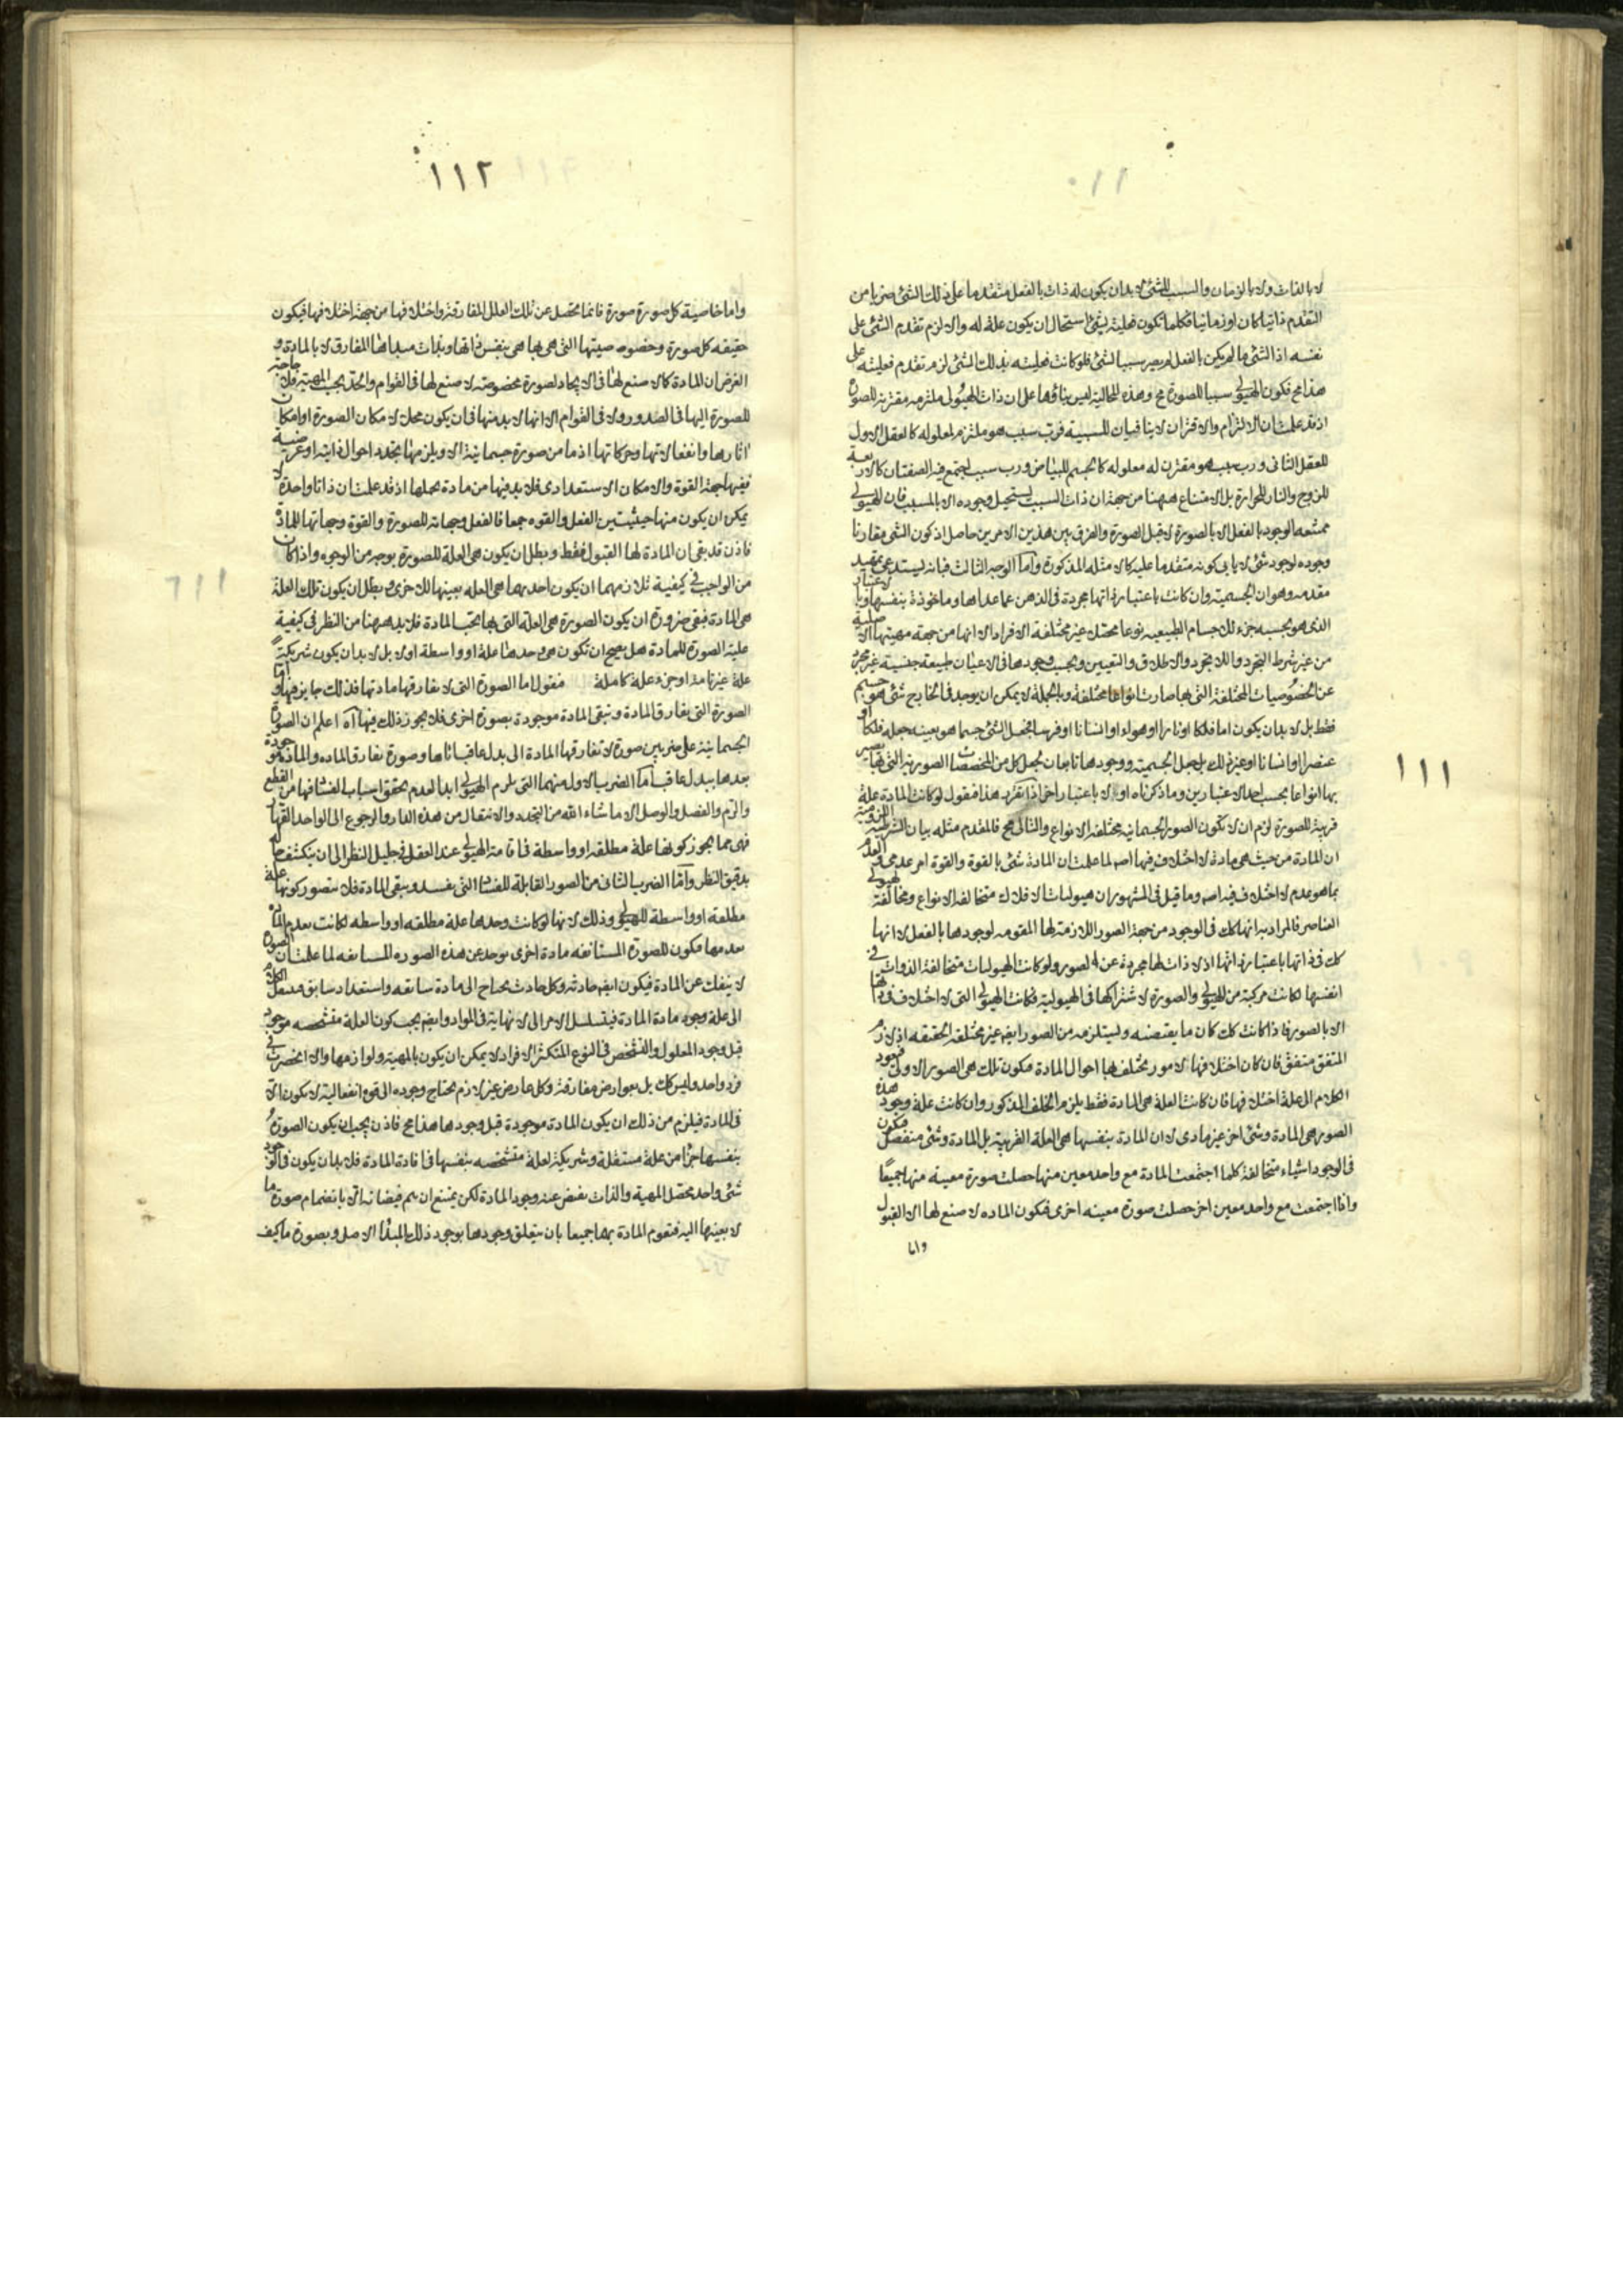 لا بالذات ولا بالزمان والسبب للشئ لا بد ان يكون له ذات بالفعل متقدما على ذلك الشئ ضربا من
التقدم ذاتيا كان او زمانيا فكلما تكون فعليته بشئ استحال ان يكون علة له والا لزم تقدم الشئ على
نفسه اذ الشئ ما لم يكن بالفعل لم يصر سببا لشئ فلو كانت فعليته بذلك الشئ لزم تقدم فعليته على
هذا مح فكون الهيولى سببا للصورة مح وهذه المحالية ليس بناؤها على ان ذات الهيولى ملتزمه مقترنه للصورة
اذ قد علمت ان الالتزام والاقتران لا ينافيان السببية فرب سبب هو ملتزم لمعلوله كالعقل الاول
للعقل الثانى ورب سبب هو مقترن له معلوله كالجسم للبياض ورب سبب اجتمع فيه الصفتان كالاربعة
للزوج والنار للحرارة بل الامتناع ههنا من جهة ان ذات السبب يستحيل وجوده الا بالمسبب فان الهيولى
ممتنعه الوجود بالفعل الا بالصورة لا قبل الصورة والفرق بين هذين الامرين حاصل اذ كون الشئ مقارنا
وجوده لوجود شئ لا يابى كونه متقدما عليه كالامثله المذكورة واما الوجه الثالث فبانه يستدعى تمهيد
مقدمه وهو ان الجسمية وان كانت باعتبار ذاتها مجردة فى الذهن عما عداها وماخوذة بنفسها وبالاعتبار
الذى هو بحسبه جزء للاجسام الطبيعيه نوعا محصلا غير مختلفة الافراد الا انها من جهة مهيتها الاصلية
من غير شرط التجرد واللاتجرد والاطلاق والتعيين وبحسب وجودها فى الاعيان طبيعة جنسية غير مجردة
عن الخصوصيات المختلفة التى بها صارت انواعا مختلفة وبالجملة لا يمكن ان يوجد فى الخارج شئ هو جسم
فقط بل لا بد ان يكون اما فلكا او نارا او هواء او انسانا او فرسا فجعل الشئ جسما هو بعينه جعله فلكا او
عنصرا او انسانا او غير ذلك بل جعل الجسمية ووجودها تابعان لجعل كل من المخصصات الصورية التى تصير
بها انواعا بحسب احد الاعتبارين وما ذكرناه اولا باعتبار اخر اذا تقرر هذا فنقول لو كانت المادة علة
قريبة للصورة لزم ان لا تكون الصور الجسمانيه مختلفة الانواع والتالى مح فالمقدم مثله بيان الشرطية اللزومية
ان المادة من حيث هى مادة لا اختلاف فيها اصلا لما علمت ان المادة شئ بالقوة والقوة امر عدمى والعدم
بما هو عدم لا اختلاف فيه اصلا وما قيل فى المشهور ان هيوليات الافلاك متخالفة الانواع ومخالفة لهيولى
العناصر فالمراد به انها كك فى الوجود من جهة الصور اللازمة لها المقومه لوجودها بالفعل لا انها
كك فى ذاتها باعتبار ذاتها اذ لا ذات لها مجردة عن الصور ولو كانت الهيوليات متخالفة الذوات فى
انفسها لكانت مركبة من الهيولى والصورة لاشتراكها فى الهيولية فكانت الهيولى التى لا اختلاف فى ذاتها
الا بالصور فاذا كانت كك كان ما يقتضيه ويستلزمه من الصور ايضا غير مختلفة الحقيقه اذ لازم
المتفق متفق فان كان اختلافها لامور تختلف بها احوال المادة فكون تلك هى الصور الاولى فيعود
الكلام الى علة اختلافها فان كانت العلة هى المادة فقط يلزم الخلف المذكور وان كانت علة وجود هذه
الصور هى المادة وشئ اخر غير مادى لا ان المادة بنفسها هى العلة القريبة بل المادة وشئ منفصل فيكون
فى الوجود اشياء متخالفة كلما اجتمعت المادة مع واحد معين منها حصلت صورة معينه منها جميعا
واذا اجتمعت مع واحد معين اخر حصلت صورة معينه اخرى فيكون الماده لا صنع لها الا القبول
واما
١١١
١١٢
واما خاصية كل صورة صورة فانما تحصل عن تلك العلل المفارقة واختلافها من جهة اختلافها فيكون
حقيقه كل صورة وخصوصيتها التى هى بها هى بنفس ذاتها وبذات مبدأها المفارق لا بالمادة و
الغرض ان المادة كما لا صنع لها فى الايجاد لصورة مخصوصة لا صنع لها فى القوام والتحدد بحسب المهية فلا حاجة
للصورة اليها فى الصدور ولا فى القوام الا انها لا بد منها فى ان يكون محلا لامكان الصورة او امكان
اثارها وانفعالاتها وحركاتها اذ ما من صورة جسمانية الا ويلزمها تجدد احوال ذاتية او عرضية
ففيها جهة القوة والامكان الاستعدادى فلا بد فيها من مادة تحملها اذ قد علمت ان ذاتا واحدة لا
يمكن ان يكون منها حيثيتين الفعل والقوه جمعا فالفعل وجهاته للصورة والقوة وجهاتها للمادة
فاذن قد بقى ان المادة لها القبول فقط وبطل ان يكون هى العلة للصورة بوجه من الوجوه واذا كان
من الواجب فى كيفية تلازمهما ان يكون احديهما هى العلة بعينها للاخرى وبطل ان يكون تلك العلة
هى المادة فبقى ضرورة ان يكون الصورة هى العلة التى بها تجب المادة فلا بد ههنا من النظر فى كيفية
علية الصورة للمادة هل يصح ان تكون هى وحدها علة او واسطة اولا بل لا بد ان يكون شريكة
علة غير تامة او جزء علة كاملة فنقول اما الصورة التى لا يفارقها مادتها فذلك جايز فيها واما
الصورة التى يفارق المادة وتبقى المادة موجودة بصورة اخرى فلا يجوز ذلك فيها اه اعلم ان الصورة
الجسمانية على ضربين صورة لا تفارقها المادة الى بدل عاقب اياها وصورة تفارق الماده والمادة موجودة
بعدها ببدل عاقب اما الضرب الاول منهما التى تلزم الهيولى ابدا لعدم تحقق اسباب الفساد فيها من القطع
والرم والفصل والوصل الا ما شاء الله من التجدد والانتقال من هذه الدار والرجوع الى الواحد القهار
فهى مما يجوز كونها علة مطلقة او واسطة فى اقامة الهيولى عند العقل فى جليل النظر الى ان ينكشف له
بدقيق النظر واما الضرب الثانى من الصور القابلة للفساد التى تفسد ويبقى المادة فلا يتصور كونها علة
مطلقة او واسطة للهيولى وذلك لانها لو كانت وحدها علة مطلقه او واسطه لكانت بعدم المادة
بعدمها فيكون للصورة المستانفه مادة اخرى توجد عن هذه الصوره المستانفه لما علمت ان الصورة
لا ينفك عن المادة فيكون ايضا حادثه وكل حادث يحتاج الى مادة سابقه واستعداد سابق فينتقل الكلام
الى علة وجود مادة المادة فيتسلسل الامر الى لا نهاية فى المواد وايضا يجب كون العلة متشخصه موجودة
قبل وجود المعلول والتشخص فى النوع المتكثر الافراد لا يمكن ان يكون بالمهية ولوازمها والا انحصرت فى
فرد واحد وليس كك بل بعوارض مفارقة وكل عارض غير لازم يحتاج وجوده الى قوه انفعالية لا يكون الا
فى المادة فيلزم من ذلك ان يكون المادة موجودة قبل وجودها هذا مح فاذن يجب ان يكون الصورة
بنفسها جزءا من علة مستقلة وشريكة لعلة متشخصه بنفسها فى افادة المادة فلا بد ان يكون فى الوجود
شئ واحد محصل المهية والذات يفيض عنه وجود المادة لكن يمتنع ان يتم فيضانه الا بانضمام صورة ما
لا بعينها اليه فتقوم المادة بهما جميعا بان يتعلق وجودها بوجود ذلك المبدأ الاصل وبصورة ما كيف